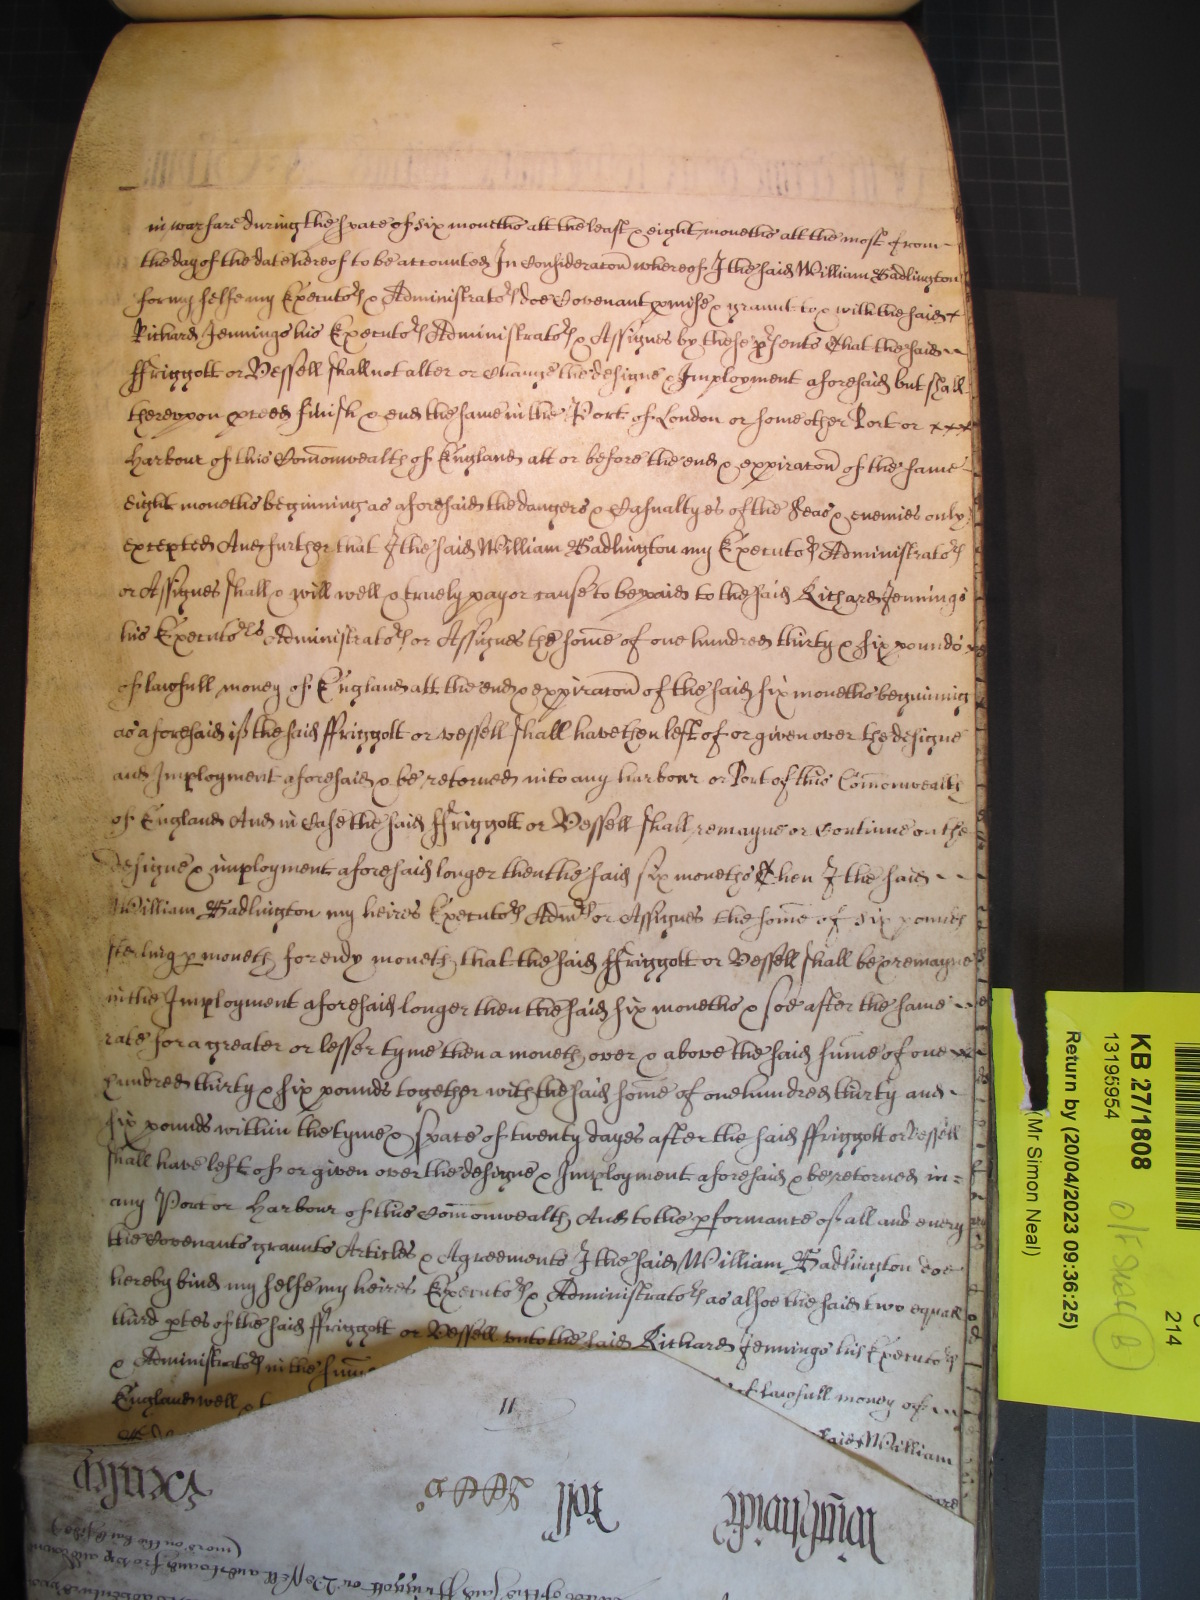 in warfare during the space of six moneths att the least & eight moneths att the most from
the day of the date hereof to be accounted In Consideracon whereof I the said William Badlington
for my selfe my Executors & Administrators doe Covenant pmise & graunt to & with the said
Richard Jennings his Executors Administrators & Assignes by these psents That the said
ffriggott or Vessell shall not alter or change the designe & Imployment aforesaid but shall
therevpon pceed finish & end the same in the Port of London or some other Port or xxx
Harbour of this Comonwealth of England att or before the end & expiracon of the same
eight moneths beginning as aforesaid the dangers & Casualtyes of the Seas & enemies only
excepted And further that I the said William Badlington my Executors Administrators
or Assignes shall & will well & truely pay or cause to be paid to the said Richard Jennings
his Executors Administrators or Assignes the some of one hundred thirty & six pounds
of lawfull money of England att the end & expiracon of the said six moneths beginning
as aforesaid if the said ffriggott or vessell shall have then left of or given over the designe
and Imployment aforesaid & be retorned into any harbour or Port of this Comonwealth
of England And in Case the said ffriggott or Vessell shall remayne or Continue on the
designe & imployment aforesaid longer then the said six moneths Then I the said
William Badlington my heires Executors Admrs or Assignes the some of six pounds
sterling p moneth for evy moneth that the said ffriggott or Vessell shall be & remayne
in the Imployment aforesaid longer then the said six moneths & soe after the same
rate for a greater or lesser tyme then a moneth over & above the said sume of one
hundred thirty & six pounds together with the said some of one hundred thirty and
six pounds within the tyme & space of twenty dayes after the said ffriggott or Vessell
shall have left of or given over the designe & Imployment aforesaid & be retorned in
any Port or Harbour of this Comonwealth And to the pformance of all and every
the Covenants graunts Articles & Agreements I the said William Badlington doe
hereby bind my selfe my heires Executors & Administrators as alsoe the said two equall
third ptes of the said ffriggott or Vessell vnto the said Richard Jennings his Executors
& Administrators in the sum
of lawfull money of
England well &
said William
11
Roll
(more on the backside)
of the said ffriggott or Vessell
KB 27/1808
13195954
Return by (20/04/2023 09:36:25)
(Mr Simon Neal)
214